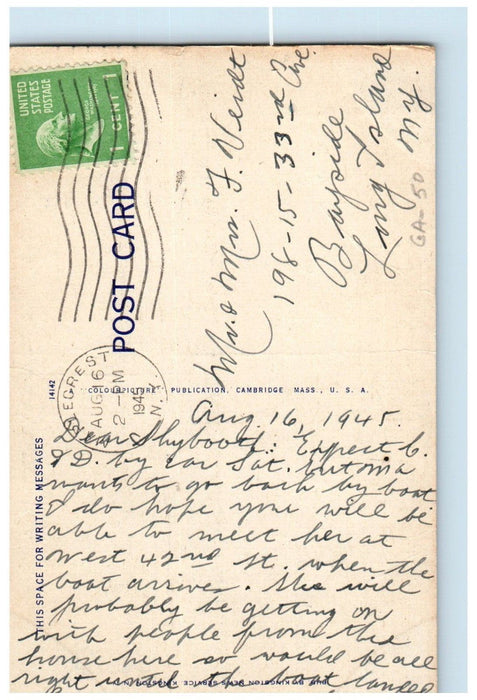 UNITED
STATES
POSTAGE
1 CENT 1
POST CARD
Mr. & Mrs. F. Veidt
198-15-33rd Ave.
Bayside
Long Island
N.Y.
GA-50
AUG 16
2-PM
1945
N.Y.
14142
"COLOURPICTURE" PUBLICATION, CAMBRIDGE, MASS., U.S.A.
THIS SPACE FOR WRITING MESSAGES
Aug. 16, 1945.
Dear : Expect C.
& D. by car Sat.
wants to go back by boat
I do hope you will be
able to meet her at
West 42nd St. when the
boat arrives. She will
probably be getting on
with people from the
house here so would be all
right until the boat
KINGSTON NEWS SERVICE, KINGSTON